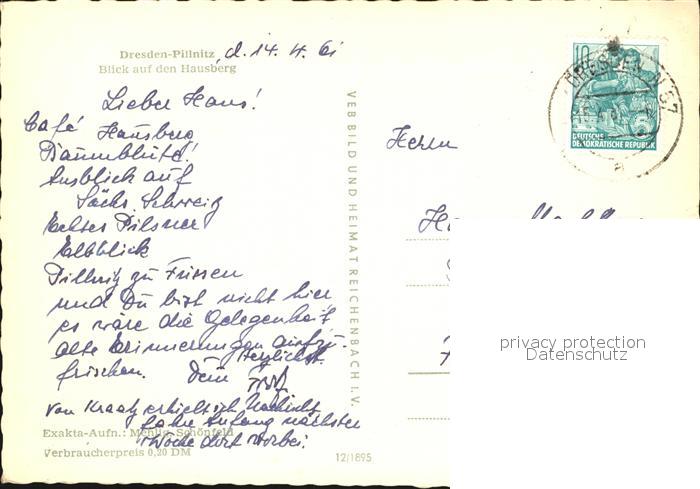 Dresden-Pillnitz
Blick auf den Hausberg
d. 14. 4. 61
Lieber Hans!
Café Hausberg
Baumblüte!
Ausblick auf
Sächs. Schweiz
Echtes Pilsner
Elbblick
Pillnitz zu Füssen
und Du bist nicht hier
es wäre die Gelegenheit
alte Erinnerungen aufzu-
frischen. Herzlichst
Dein
von Kraatz erhielt ich Nachricht,
fahre Anfang nächster
Woche dort vorbei.
Exakta-Aufn.: Mehlig-Schönfeld
Verbraucherpreis 0,20 DM
12/1895
VEB BILD UND HEIMAT REICHENBACH I. V.
Herrn
10
DEUTSCHE
DEMOKRATISCHE REPUBLIK
DRESDEN
privacy protection
Datenschutz